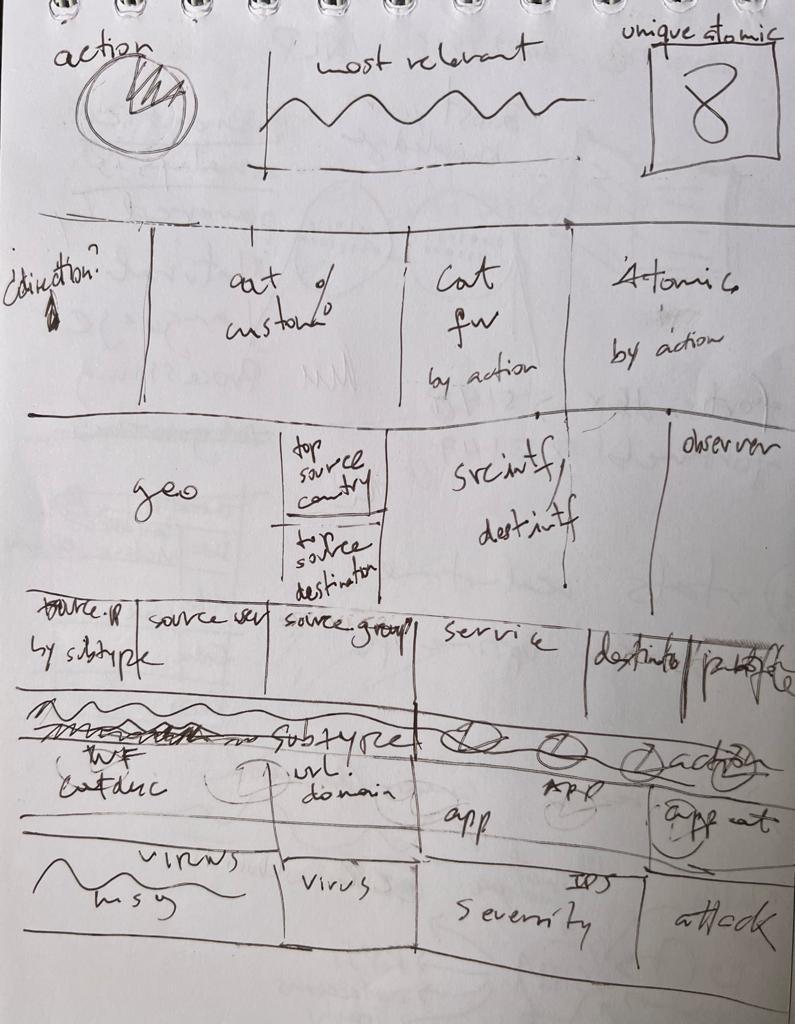 action
most relevant
unique atomic
8
direction?
cat %
custom
cat
fw
by action
Atomic
by action
geo
top
source
country
top
source
destination
srcintf/
destintf
observer
source.ip
by subtype
source user
source.group
service
destinatio
subtype
action
WF
catdesc
url.
domain
app
APP
app cat
virus
msg
virus
IPS
severnity
attack